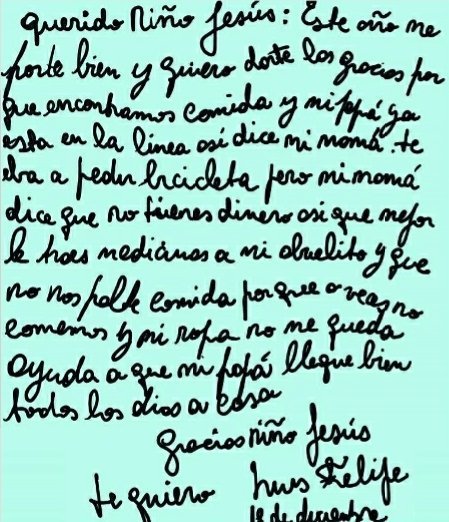 querido Niño Jesús: Este año me
porte bien y quiero darte las gracias por
que encontramos comida y mi papá ya
esta en la linea asi dice mi mamá. te
iba a pedir bicicleta pero mi mamá
dice que no tienes dinero asi que mejor
le traes medicinas a mi abuelito y que
no nos falte comida porque a veces no
comemos y mi ropa no me queda
ayuda a que mi papá llegue bien
todos los dias a casa
gracias niño Jesús
te quiero Luis Felipe
18 de diciembre